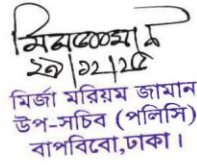 ২৯/১২/২৫
মির্জা মরিয়ম জামান
উপ-সচিব (পলিসি)
বাপবিবো,ঢাকা।